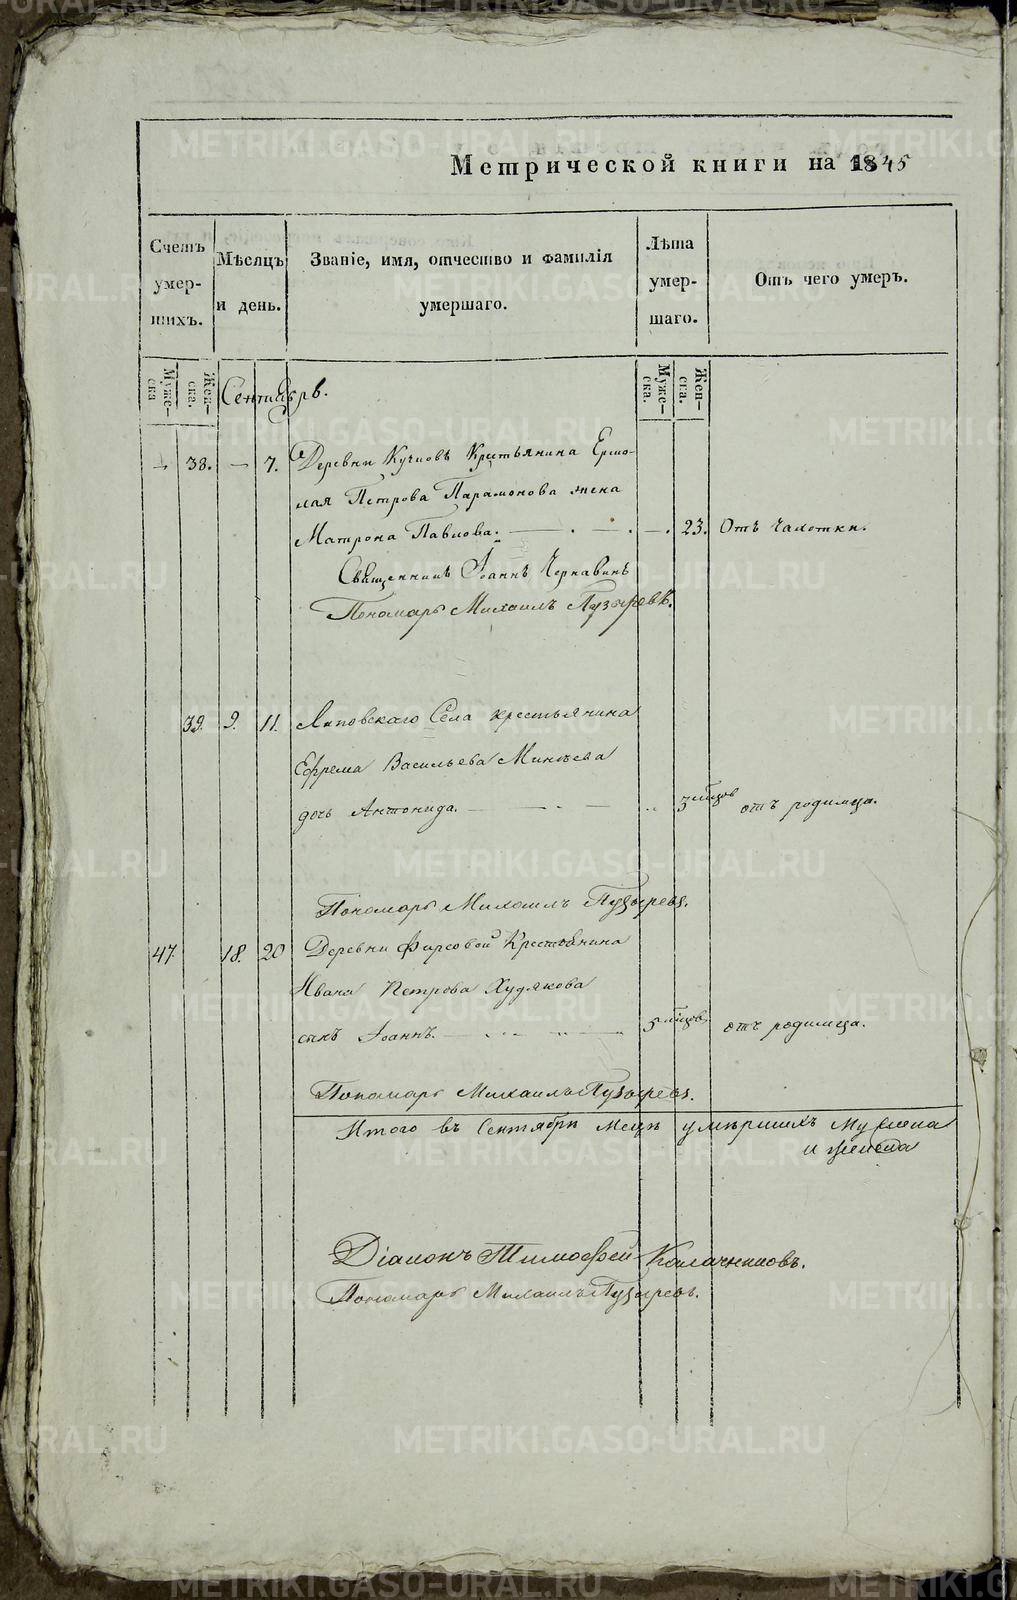 Метрической книги на 1845
Счетъ умер-шихъ.
Мѣсяцъ и день.
Званіе, имя, отчество и фамилія умершаго.
Лѣта умер-шаго.
Отъ чего умеръ.
Муже-ска
Жен-ска.
Сентябрь.
Муже-ска.
Жен-ска.
38. — 7. Деревни Кристьянина Ермо-
лая Петрова Парамонова жена
Матрона Павлова. — . — . — . 23. Отъ чахотки.
Священникъ Іоаннъ Чернавинъ
Пономарь Михаилъ Пузыревъ.
39. 9. 11. Липовскаго Села крестьянина
Ефрема Васильева Минѣева
дочь Антонида. 3 мѣцов отъ родимца.
Пономарь Михаилъ Пузыревъ.
47. 18. 20 Деревни Фирсовой Крестьянина
Ивана Петрова Худякова
сынъ Іоаннъ. 5 мѣцов. отъ родимца.
Пономарь Михаилъ Пузыревъ.
Итого въ Сентябрѣ умершихъ Мужеска
и женска
Діаконъ Тимофей Калачниковъ.
Пономарь Михаилъ Пузыревъ.
METRIKI.GASO-URAL.RU